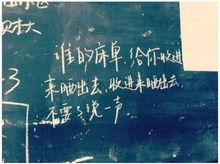 3
谁的床单,给你收进
来晒出去,收进来晒出去,
不要了说一声.